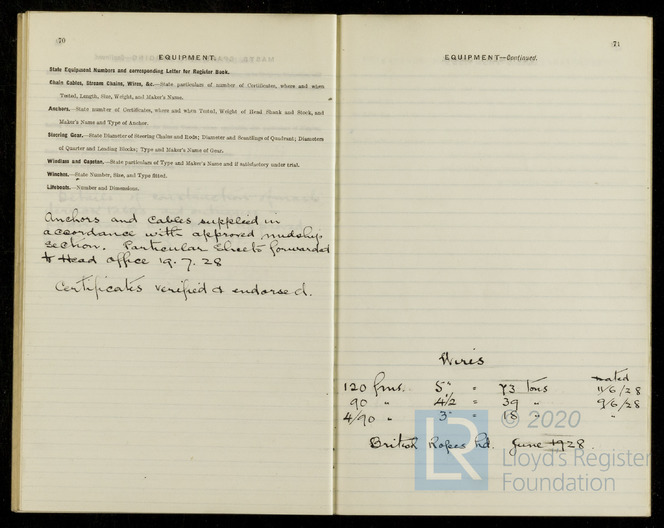 70
EQUIPMENT.
State Equipment Numbers and corresponding Letter for Register Book.
Chain Cables, Stream Chains, Wires, &c.—State particulars of number of Certificates, where and when
Tested, Length, Size, Weight, and Maker's Name.
Anchors.—State number of Certificates, where and when Tested, Weight of Head Shank and Stock, and
Maker's Name and Type of Anchor.
Steering Gear.—State Diameter of Steering Chains and Rods; Diameter and Scantlings of Quadrant; Diameters
of Quarter and Leading Blocks; Type and Maker's Name of Gear.
Windlass and Capstan.—State particulars of Type and Maker's Name and if satisfactory under trial.
Winches.—State Number, Size, and Type fitted.
Lifeboats.—Number and Dimensions.
Anchors and cables supplied in
accordance with approved midship
section. Particular Sheets forwarded
to Head office 19.7.28
Certificates verified & endorsed.
71
EQUIPMENT—Continued.
Wires
120 fms. 5" = 73 tons 11/6/28
90 " 4½ = 39 " 9/6/28
4/90 " 3" = 18 " "
British Ropes Ltd. June 1928
© 2020
LR
Lloyd's Register
Foundation